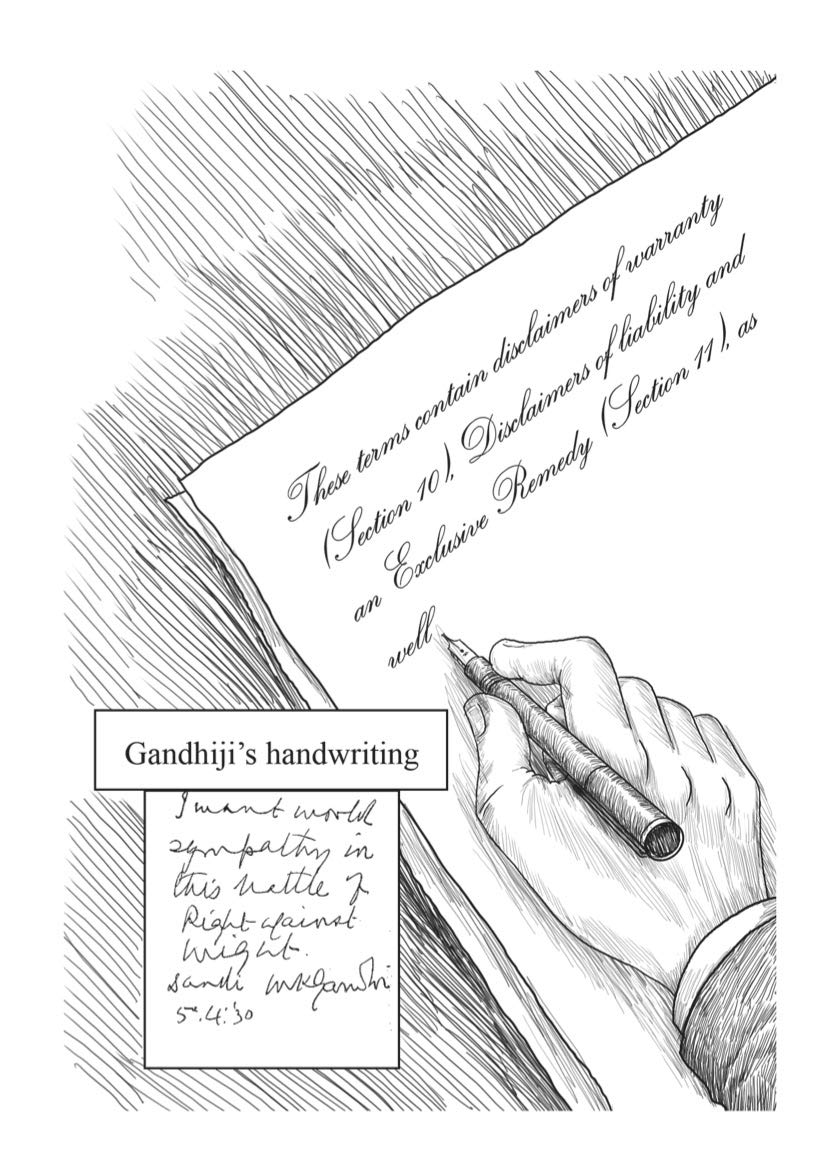 These terms contain disclaimers of warranty
(Section 10), Disclaimers of liability and
an Exclusive Remedy (Section 11), as
well
Gandhiji's handwriting
I want world
sympathy in
this battle of
Right against
might.
Dandi MKGandhi
5.4.'30